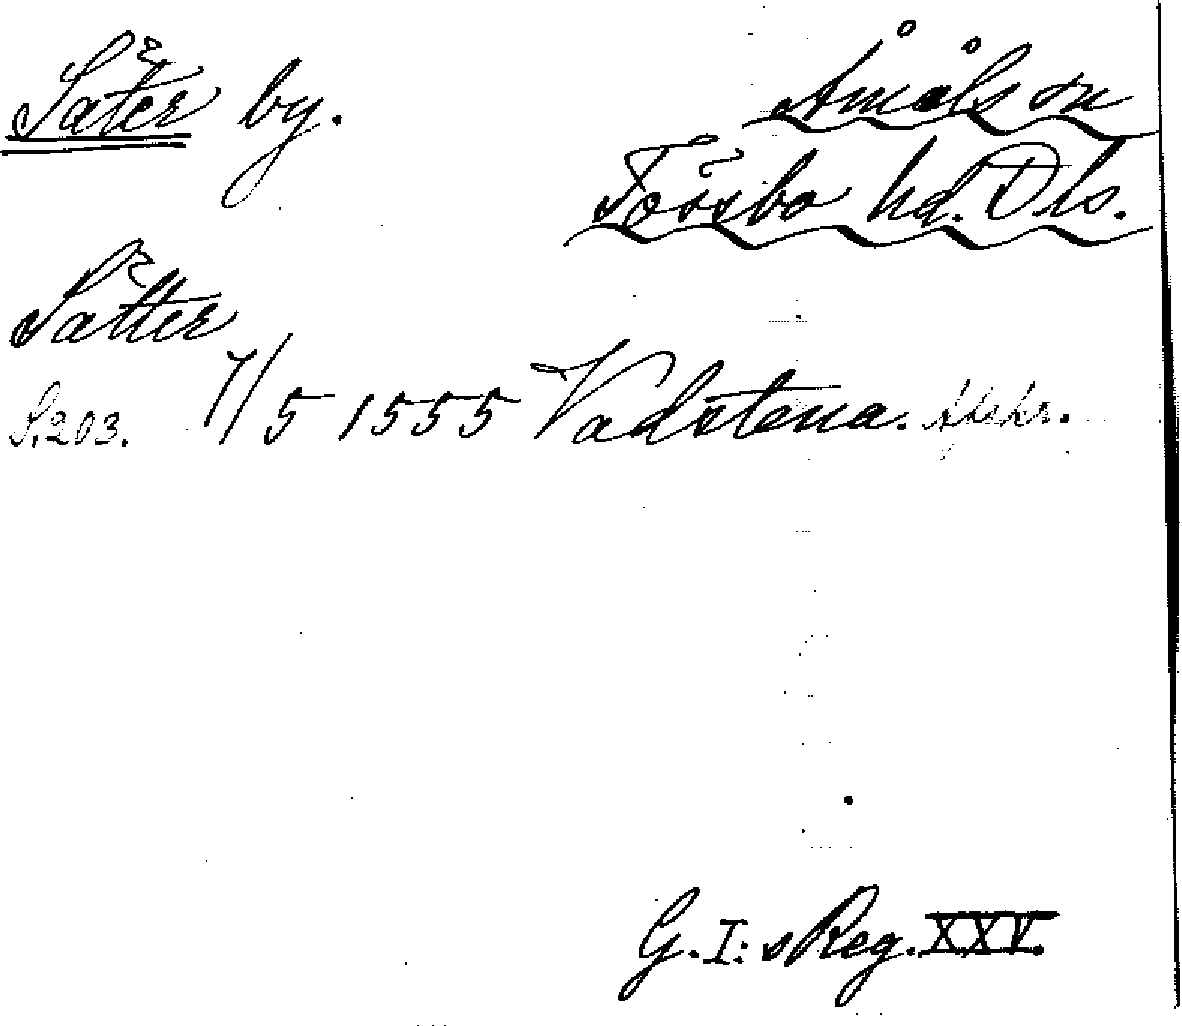 Säter by.
Åmåls sn
Tössbo hd. Dls.
Sätter
S. 203. 7/5 1555 Vadstena. Afskr.
G. I:s Reg. XXV.